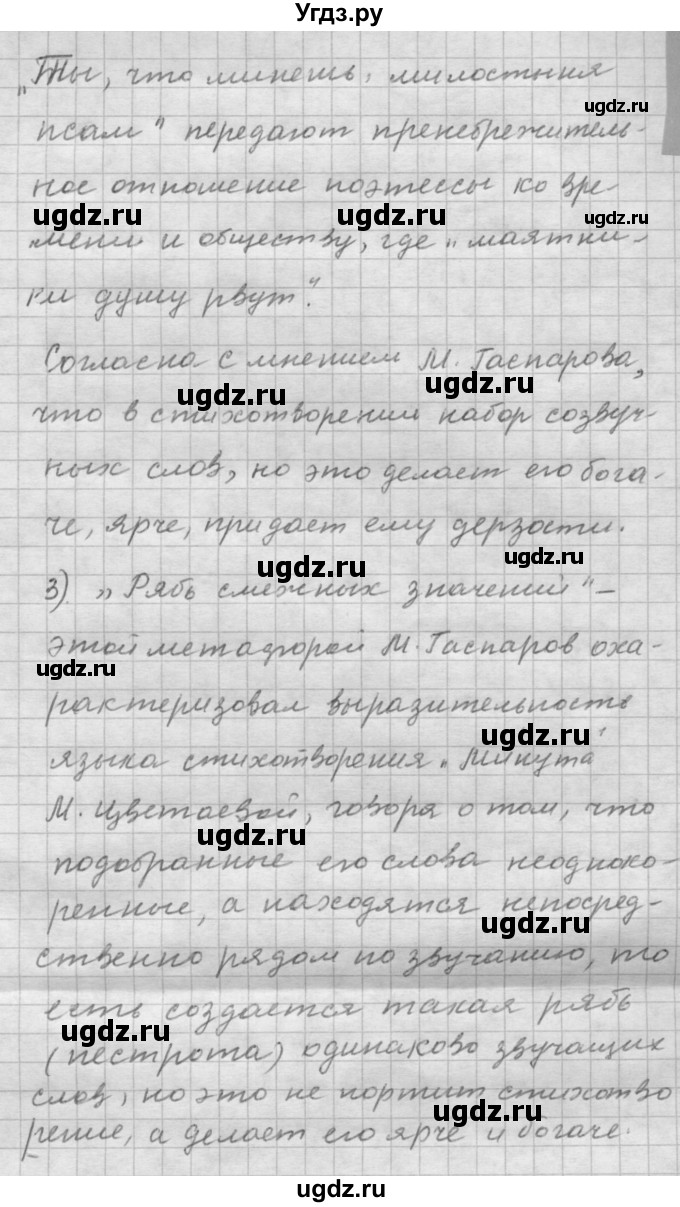 Угдз.ру
„Ты, что минешь, милостыня
ugdz.ru
псам" передают пренебрежитель-
ное отношение поэтессы ко вре-
ugdz.ru ugdz.ru ugdz.ru
мени и обществу, где „маятни-
ки душу рвут".
Согласна с мнением М. Гаспарова,
ugdz.ru ugdz.ru
что в стихотворении набор созвуч-
ных слов, но это делает его бога-
че, ярче, придает ему дерзости.
ugdz.ru ugdz.ru
3). „Рябь смежных значений" –
этой метафорой М. Гаспаров оха-
ugdz.ru
рактеризовал выразительность
ugdz.ru
языка стихотворения „Минута"
М. Цветаевой, говоря о том, что
ugdz.ru
подобранные его слова неодноко-
ренные, а находятся непосред-
ugdz.ru
ственно рядом по звучанию, то
есть создается такая рябь
ugdz.ru
(пестрота) одинаково звучащих
слов, но это не портит стихотво
ugdz.ru
рение, а делает его ярче и богаче.
ugdz.ru